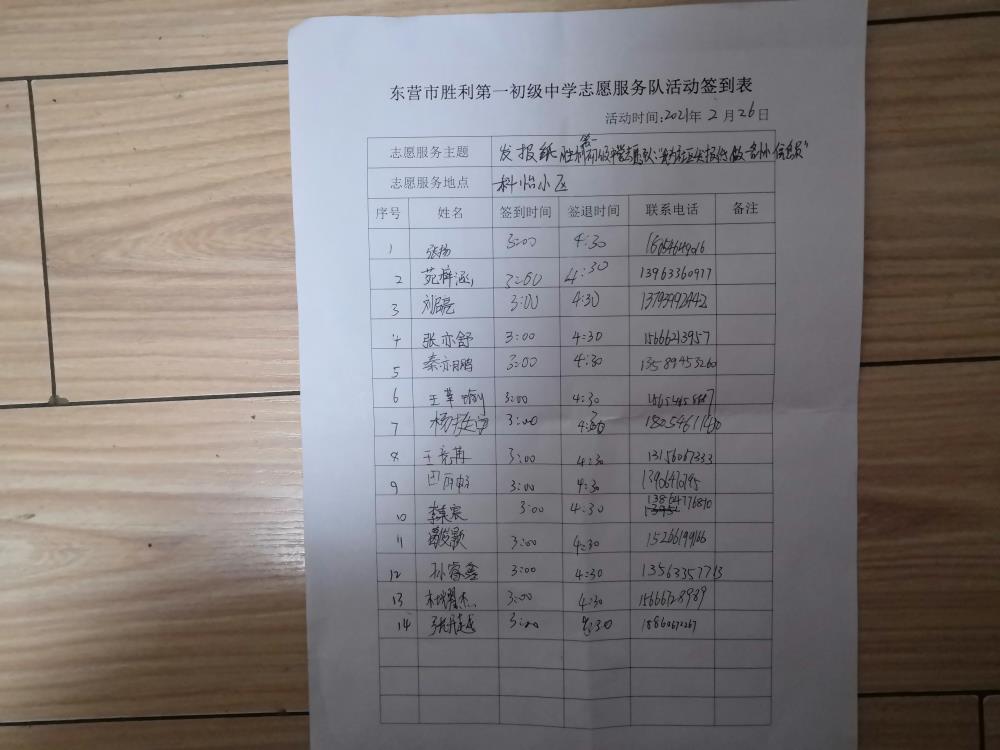 东营市胜利第一初级中学志愿服务队活动签到表
活动时间:2021年 2 月 26 日
志愿服务主题 发报纸 胜利第一初级中学志愿队:"
志愿服务地点 科怡小区
序号 姓名 签到时间 签退时间 联系电话 备注
1 张扬 3:00 4:30
2 苑梓涵 3:00 4:30 13963360977
3 3:00 4:30 13793992442
4 张亦舒 3:00 4:30 15666213957
5 秦亦鹏 3:00 4:30 13589453260
6 王草 3:00 4:30
7 3:00 4:30
8 王 3:00 4:30 13156087333
9 3:00 4:30
10 李 宸 3:00 4:30 13864776810
11 3:00 4:30
12 孙睿鑫 3:00 4:30 13563357713
13 杜 杰 3:00 4:30 15666728989
14 张 3:00 4:30 18860670267